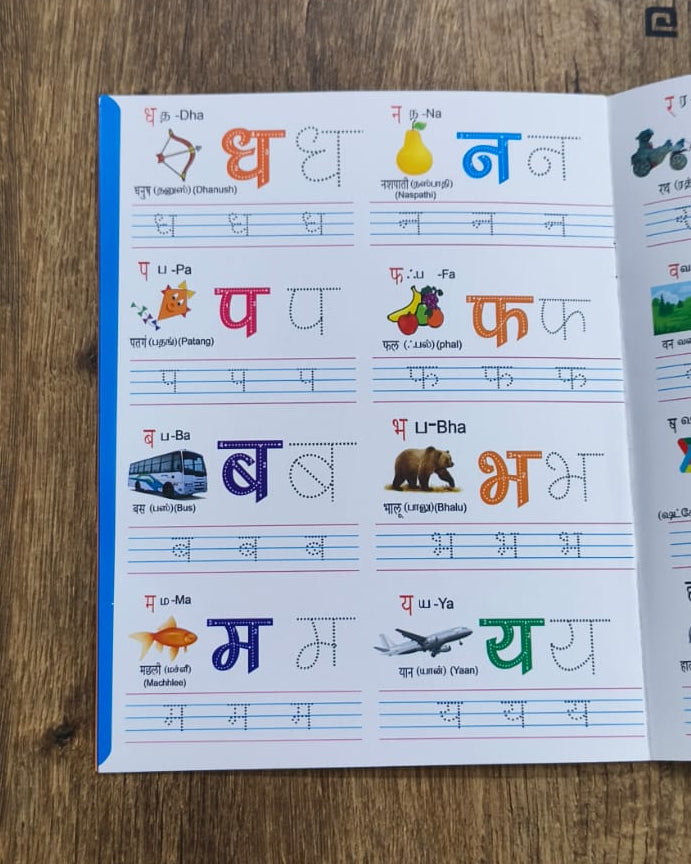 ध த -Dha
ध ध
धनुष (தனுஸ்) (Dhanush)
ध ध ध
न ந -Na
न न
नाशपाती (நஸ்பாதி)
(Naspathi)
न न न
प ப -Pa
प प
पतगं (பதங்) (Patang)
प प प
फ ஃப -Fa
फ फ
फल (ஃபல்) (phal)
फ फ फ
ब ப -Ba
ब ब
बस (பஸ்) (Bus)
ब ब ब
भ ப -Bha
भ भ
भालू (பாலு) (Bhalu)
भ भ भ
म ம -Ma
म म
मछली (மச்லீ)
(Machhlee)
म म म
य ய -Ya
य य
यान (யான்) (Yaan)
य य य
र ர
रथ
व
वन
ष